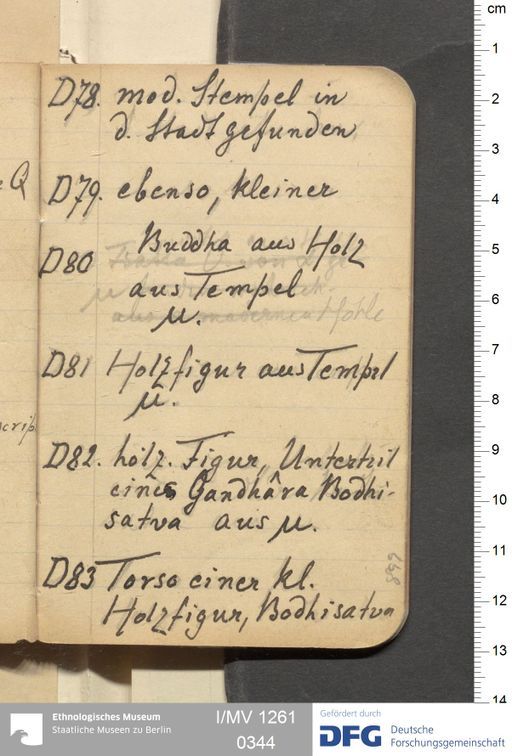 D78. mod. Stempel in
d. Stadt gefunden
Q
D79. ebenso, kleiner
D80 Buddha aus Holz
aus Tempel
µ.
Höhle
D81 Holzfigur aus Tempel
µ.
D82. hölz. Figur, Unterteil
eines Gandhâra Bodhi-
satva aus µ.
D83 Torso einer kl.
Holzfigur, Bodhisatva
cm
1
2
3
4
5
6
7
8
9
10
11
12
13
14
Ethnologisches Museum
Staatliche Museen zu Berlin
I/MV 1261
0344
Gefördert durch
DFG Deutsche
Forschungsgemeinschaft